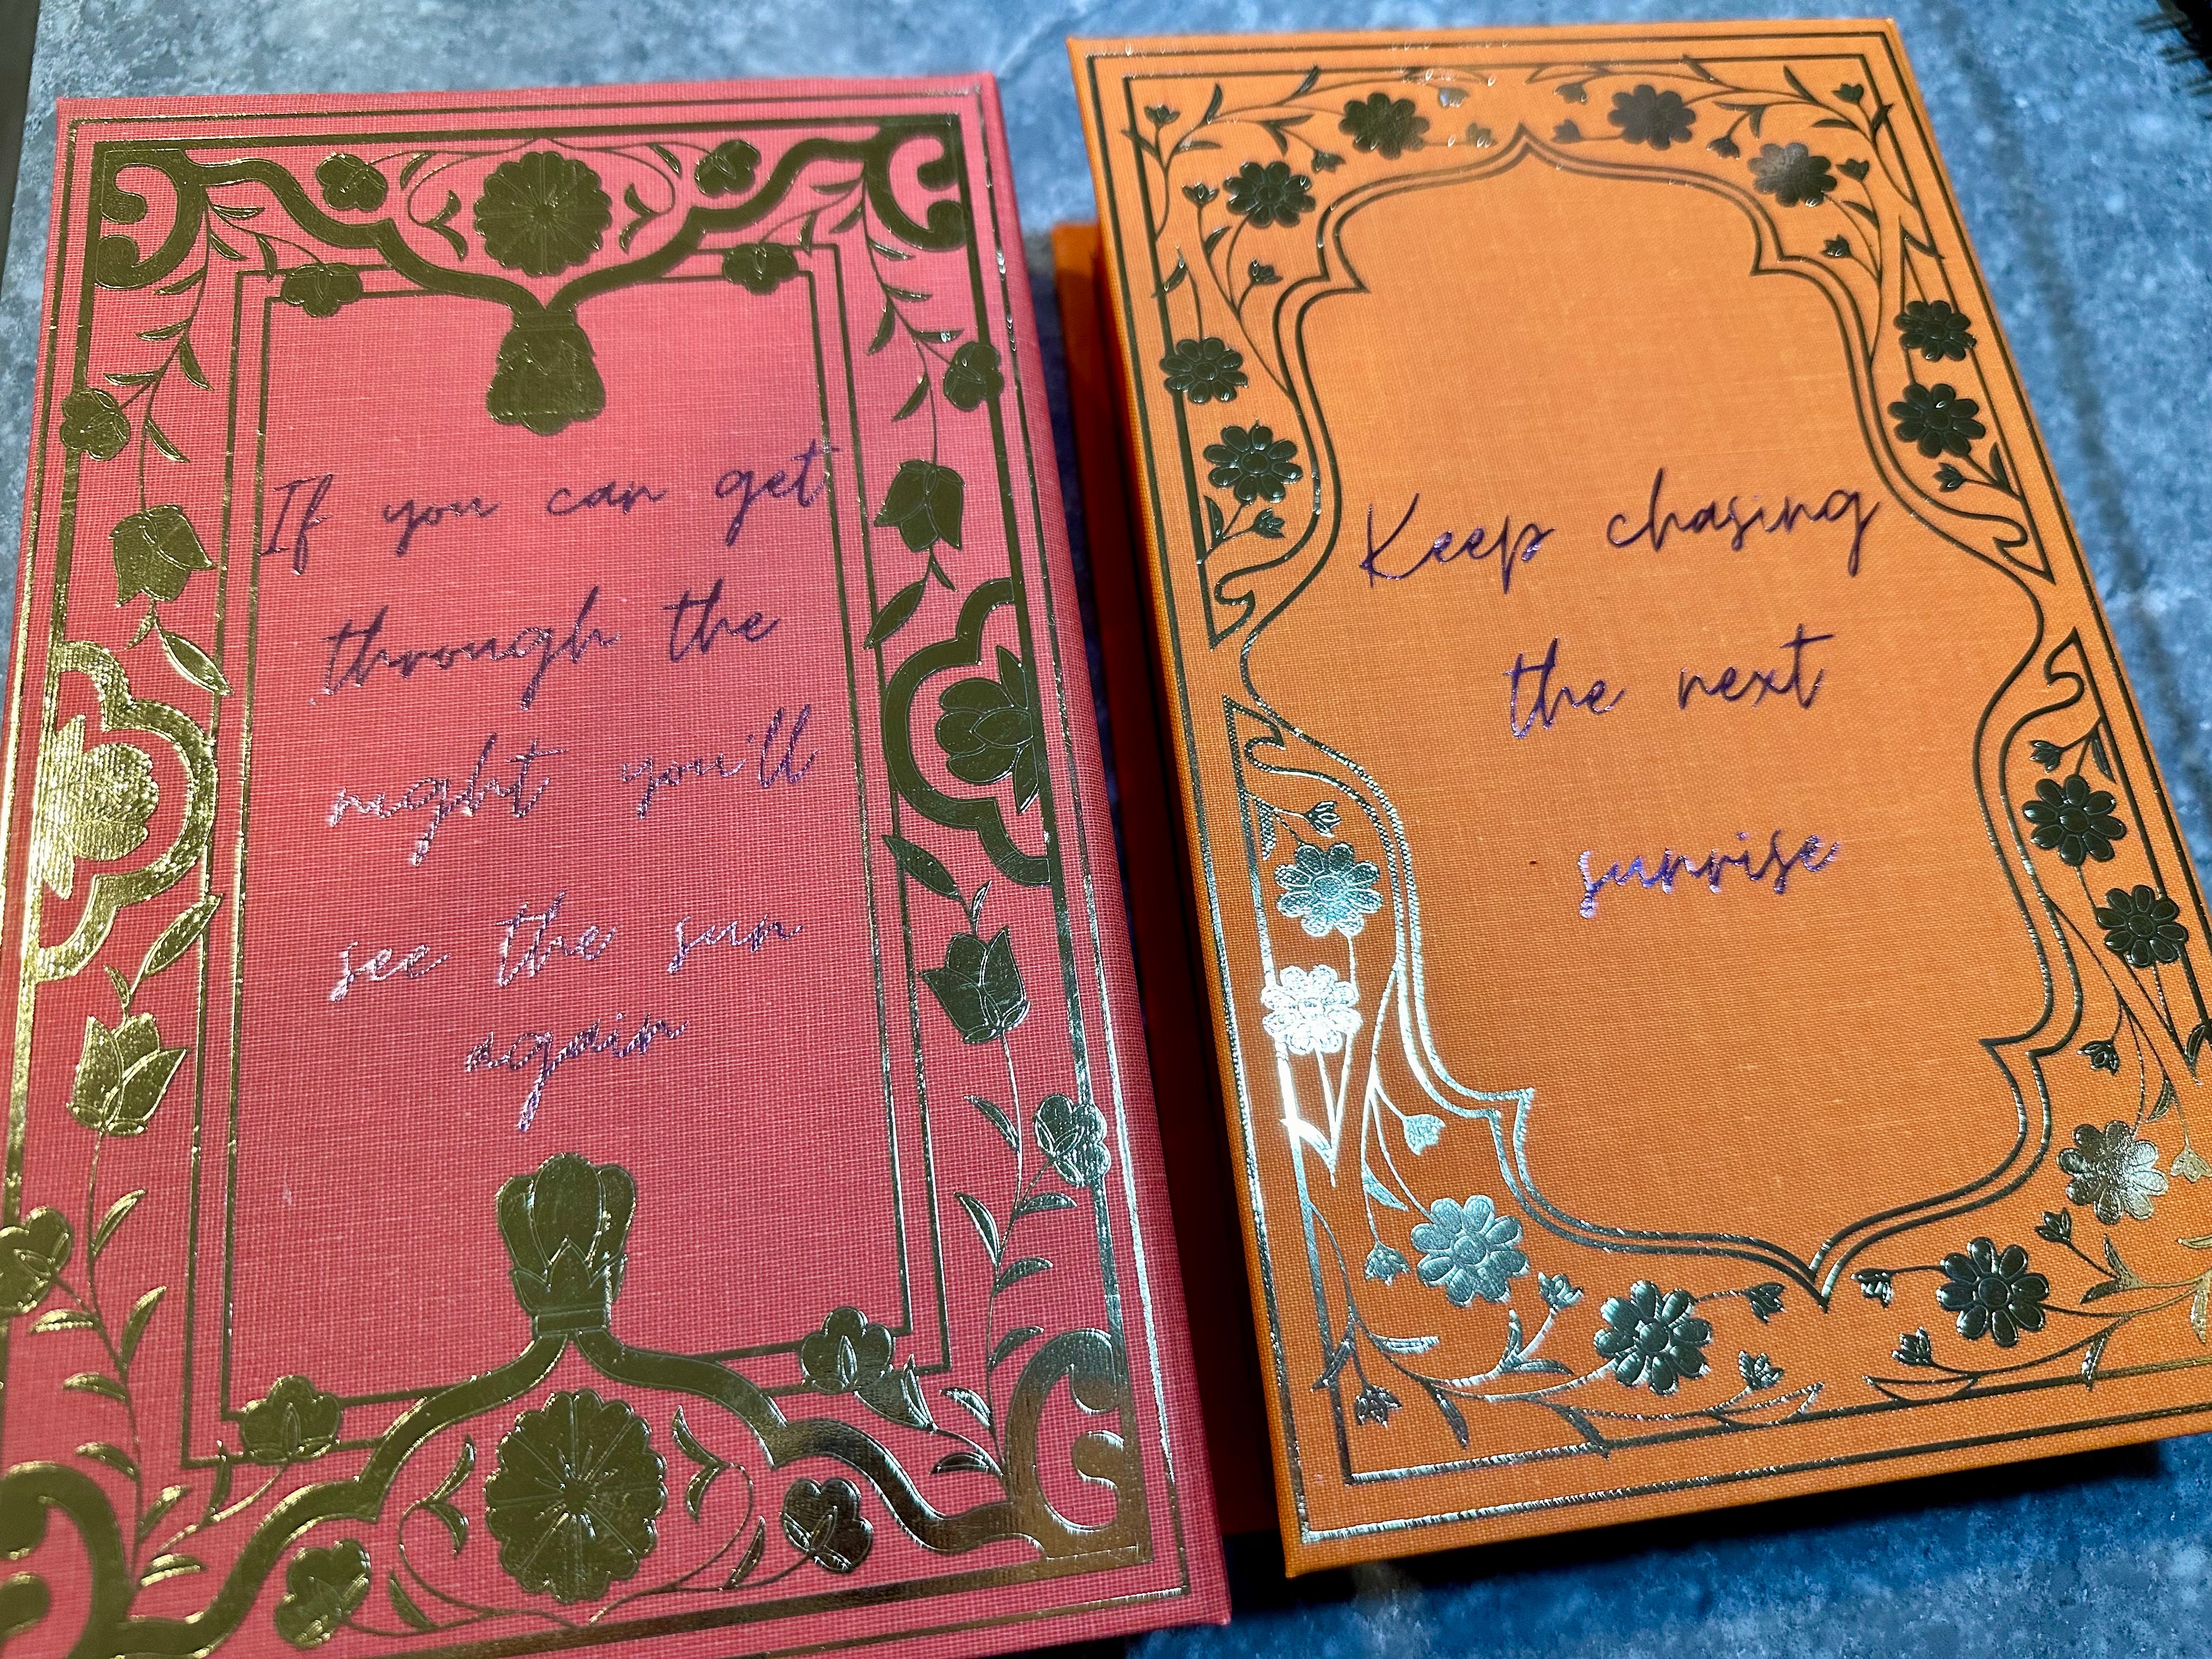 If you can get
through the
night you'll
see the sun
again
Keep chasing
the next
sunrise